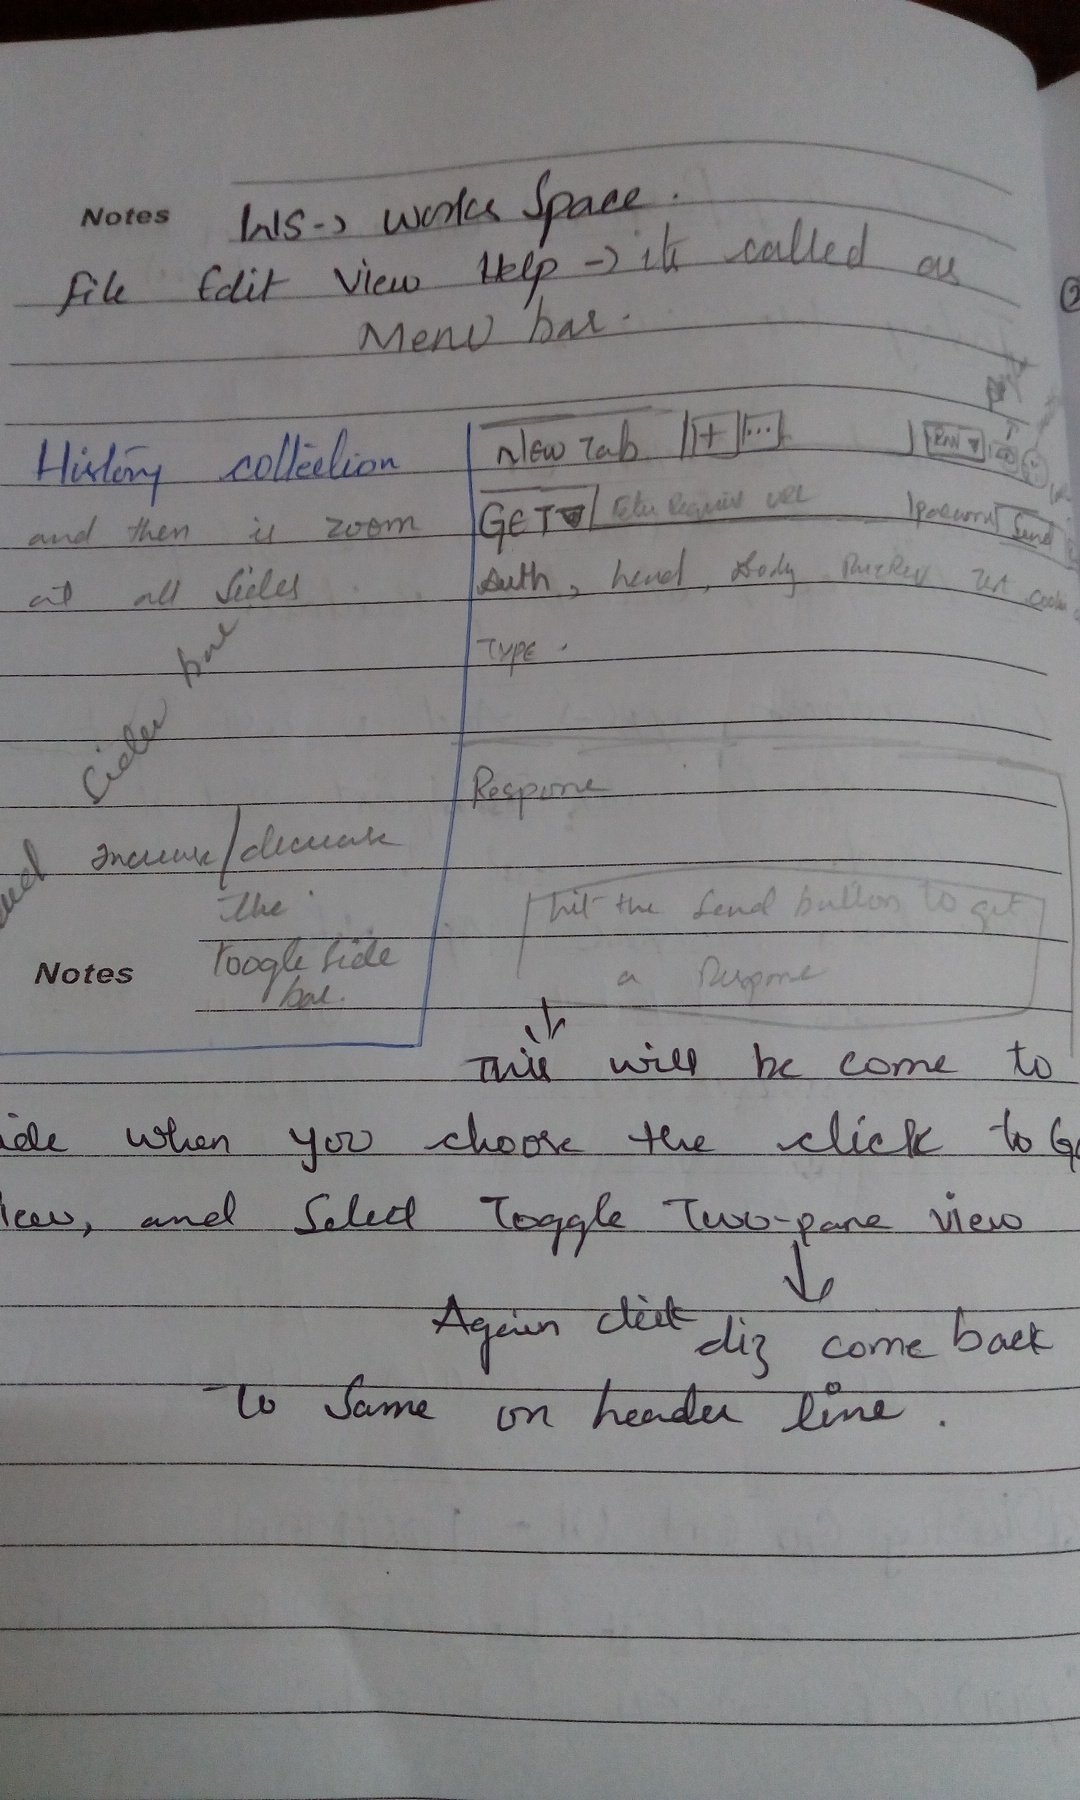 Notes WS-> Works Space.
File Edit View Help -> it called as
Menu bar.
History collection
and then is zoom
at all Sides
Sider bar
increase/decrease
the
toogle side
bar.
Notes
New Tab + ...
GET Enter Request URL Params Send
Auth, head, Body Test
TYPE.
Response
hit the Send button to get
a Response
This will be come to
when you choose the click to
and Select Toggle Two-pane view
Again click diz come back
to same on header line.